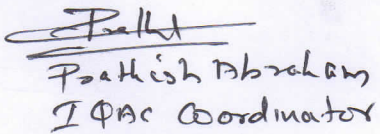 Prathish Abraham
IQAC Coordinator